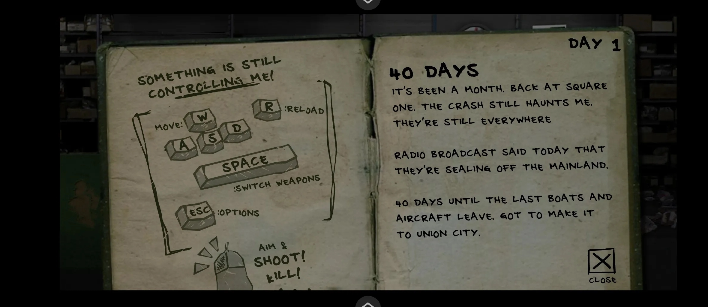 SOMETHING IS STILL
CONTROLLING ME!
MOVE: W
R :RELOAD
A S D
SPACE
:SWITCH WEAPONS
ESC :OPTIONS
AIM &
SHOOT!
KILL!
DAY 1
40 DAYS
IT'S BEEN A MONTH. BACK AT SQUARE
ONE. THE CRASH STILL HAUNTS ME.
THEY'RE STILL EVERYWHERE
RADIO BROADCAST SAID TODAY THAT
THEY'RE SEALING OFF THE MAINLAND.
40 DAYS UNTIL THE LAST BOATS AND
AIRCRAFT LEAVE. GOT TO MAKE IT
TO UNION CITY.
CLOSE